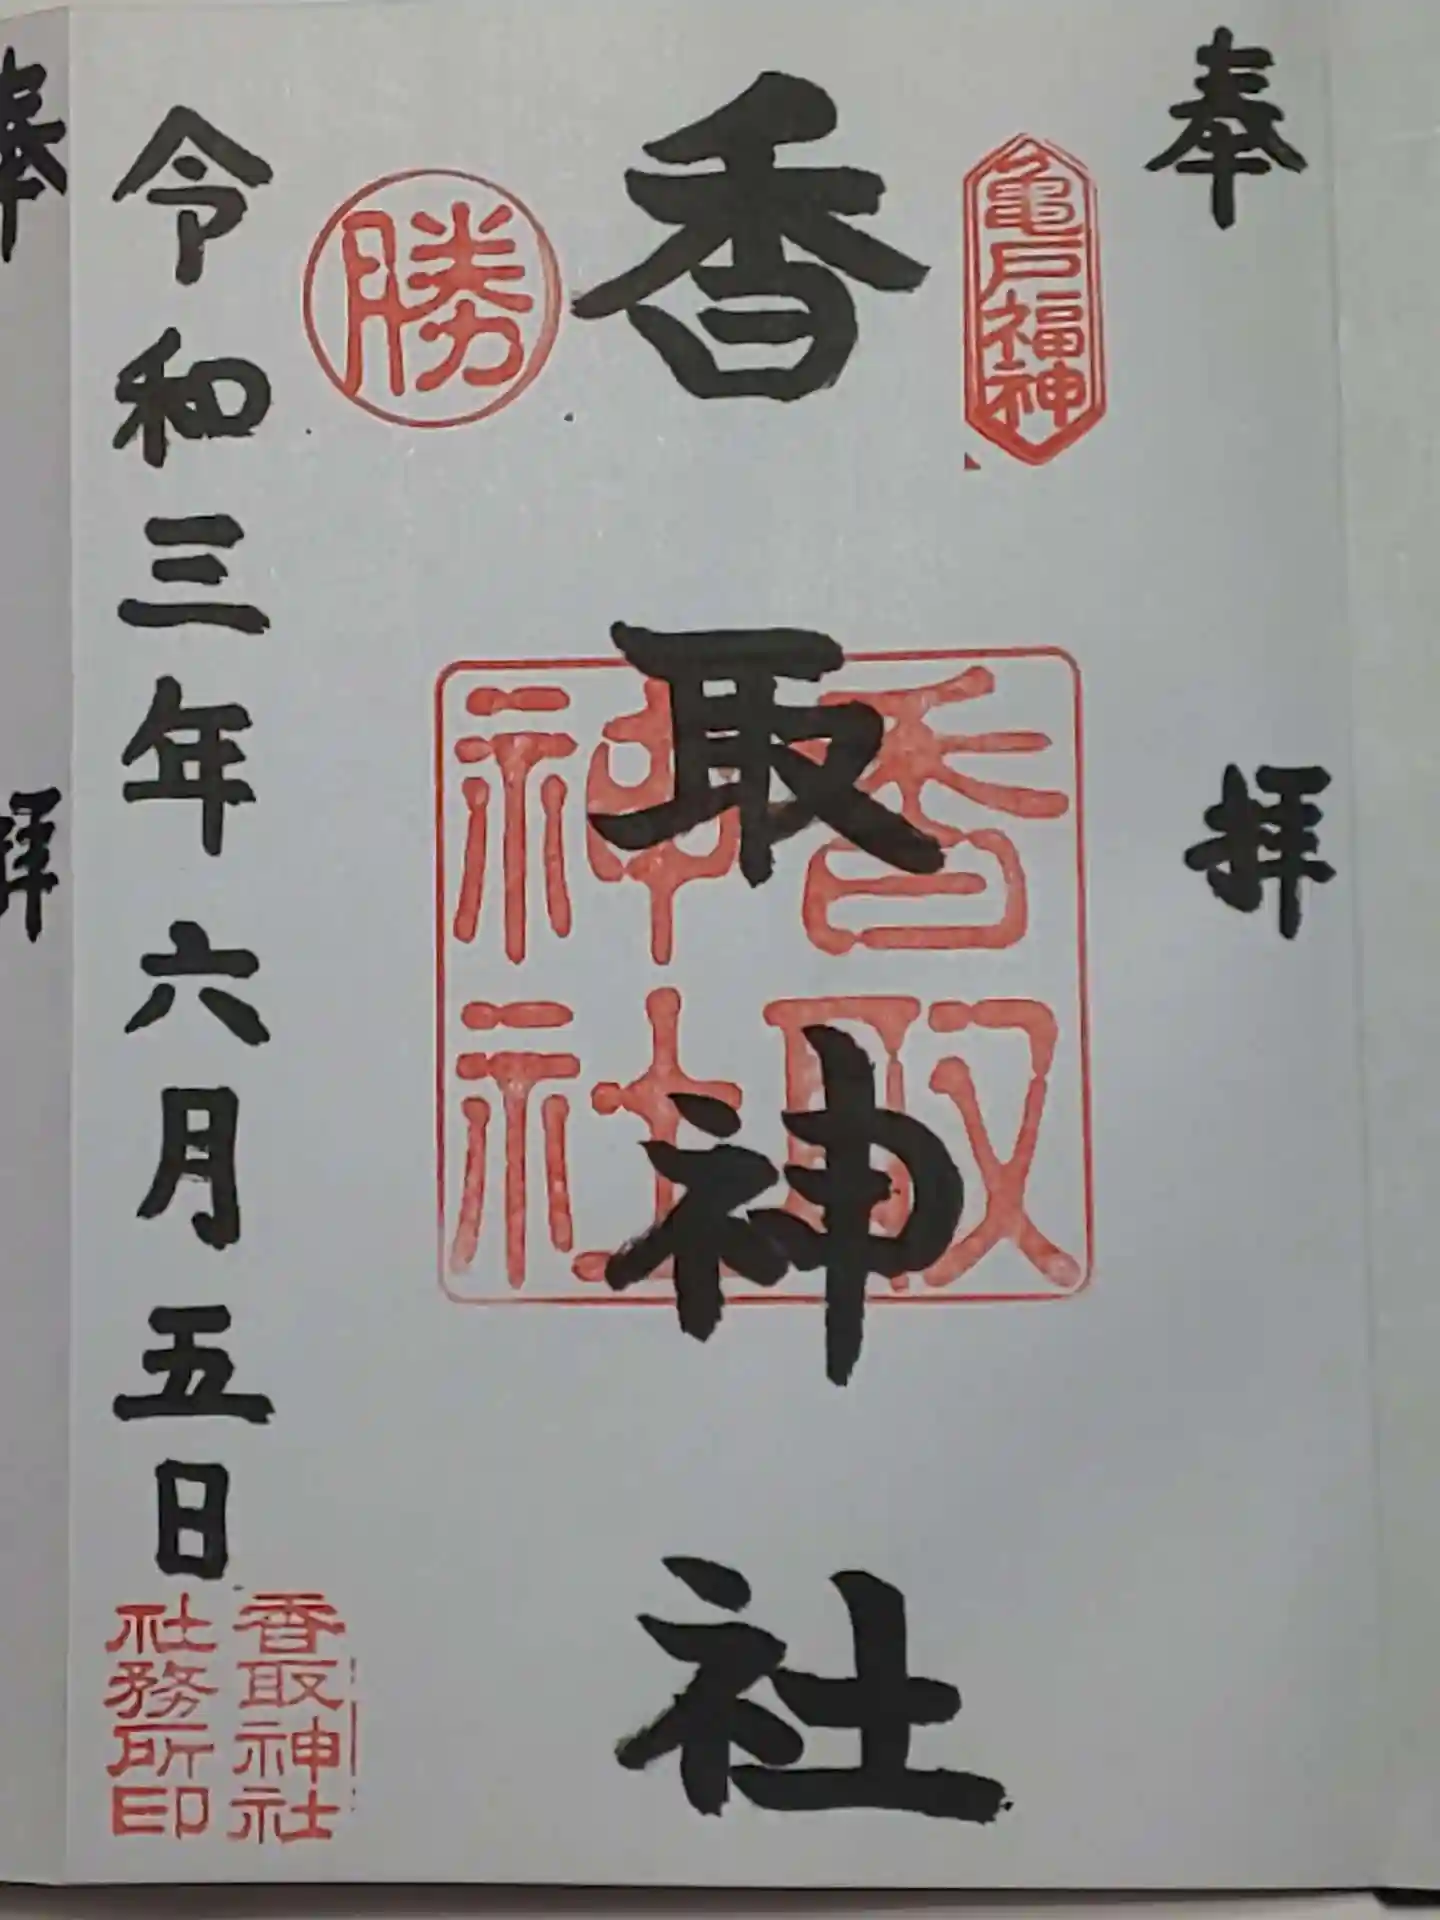 奉拝
亀戸福神
香取神社
香取神社
勝
令和三年六月五日
香取神社
社務所印
奉拝